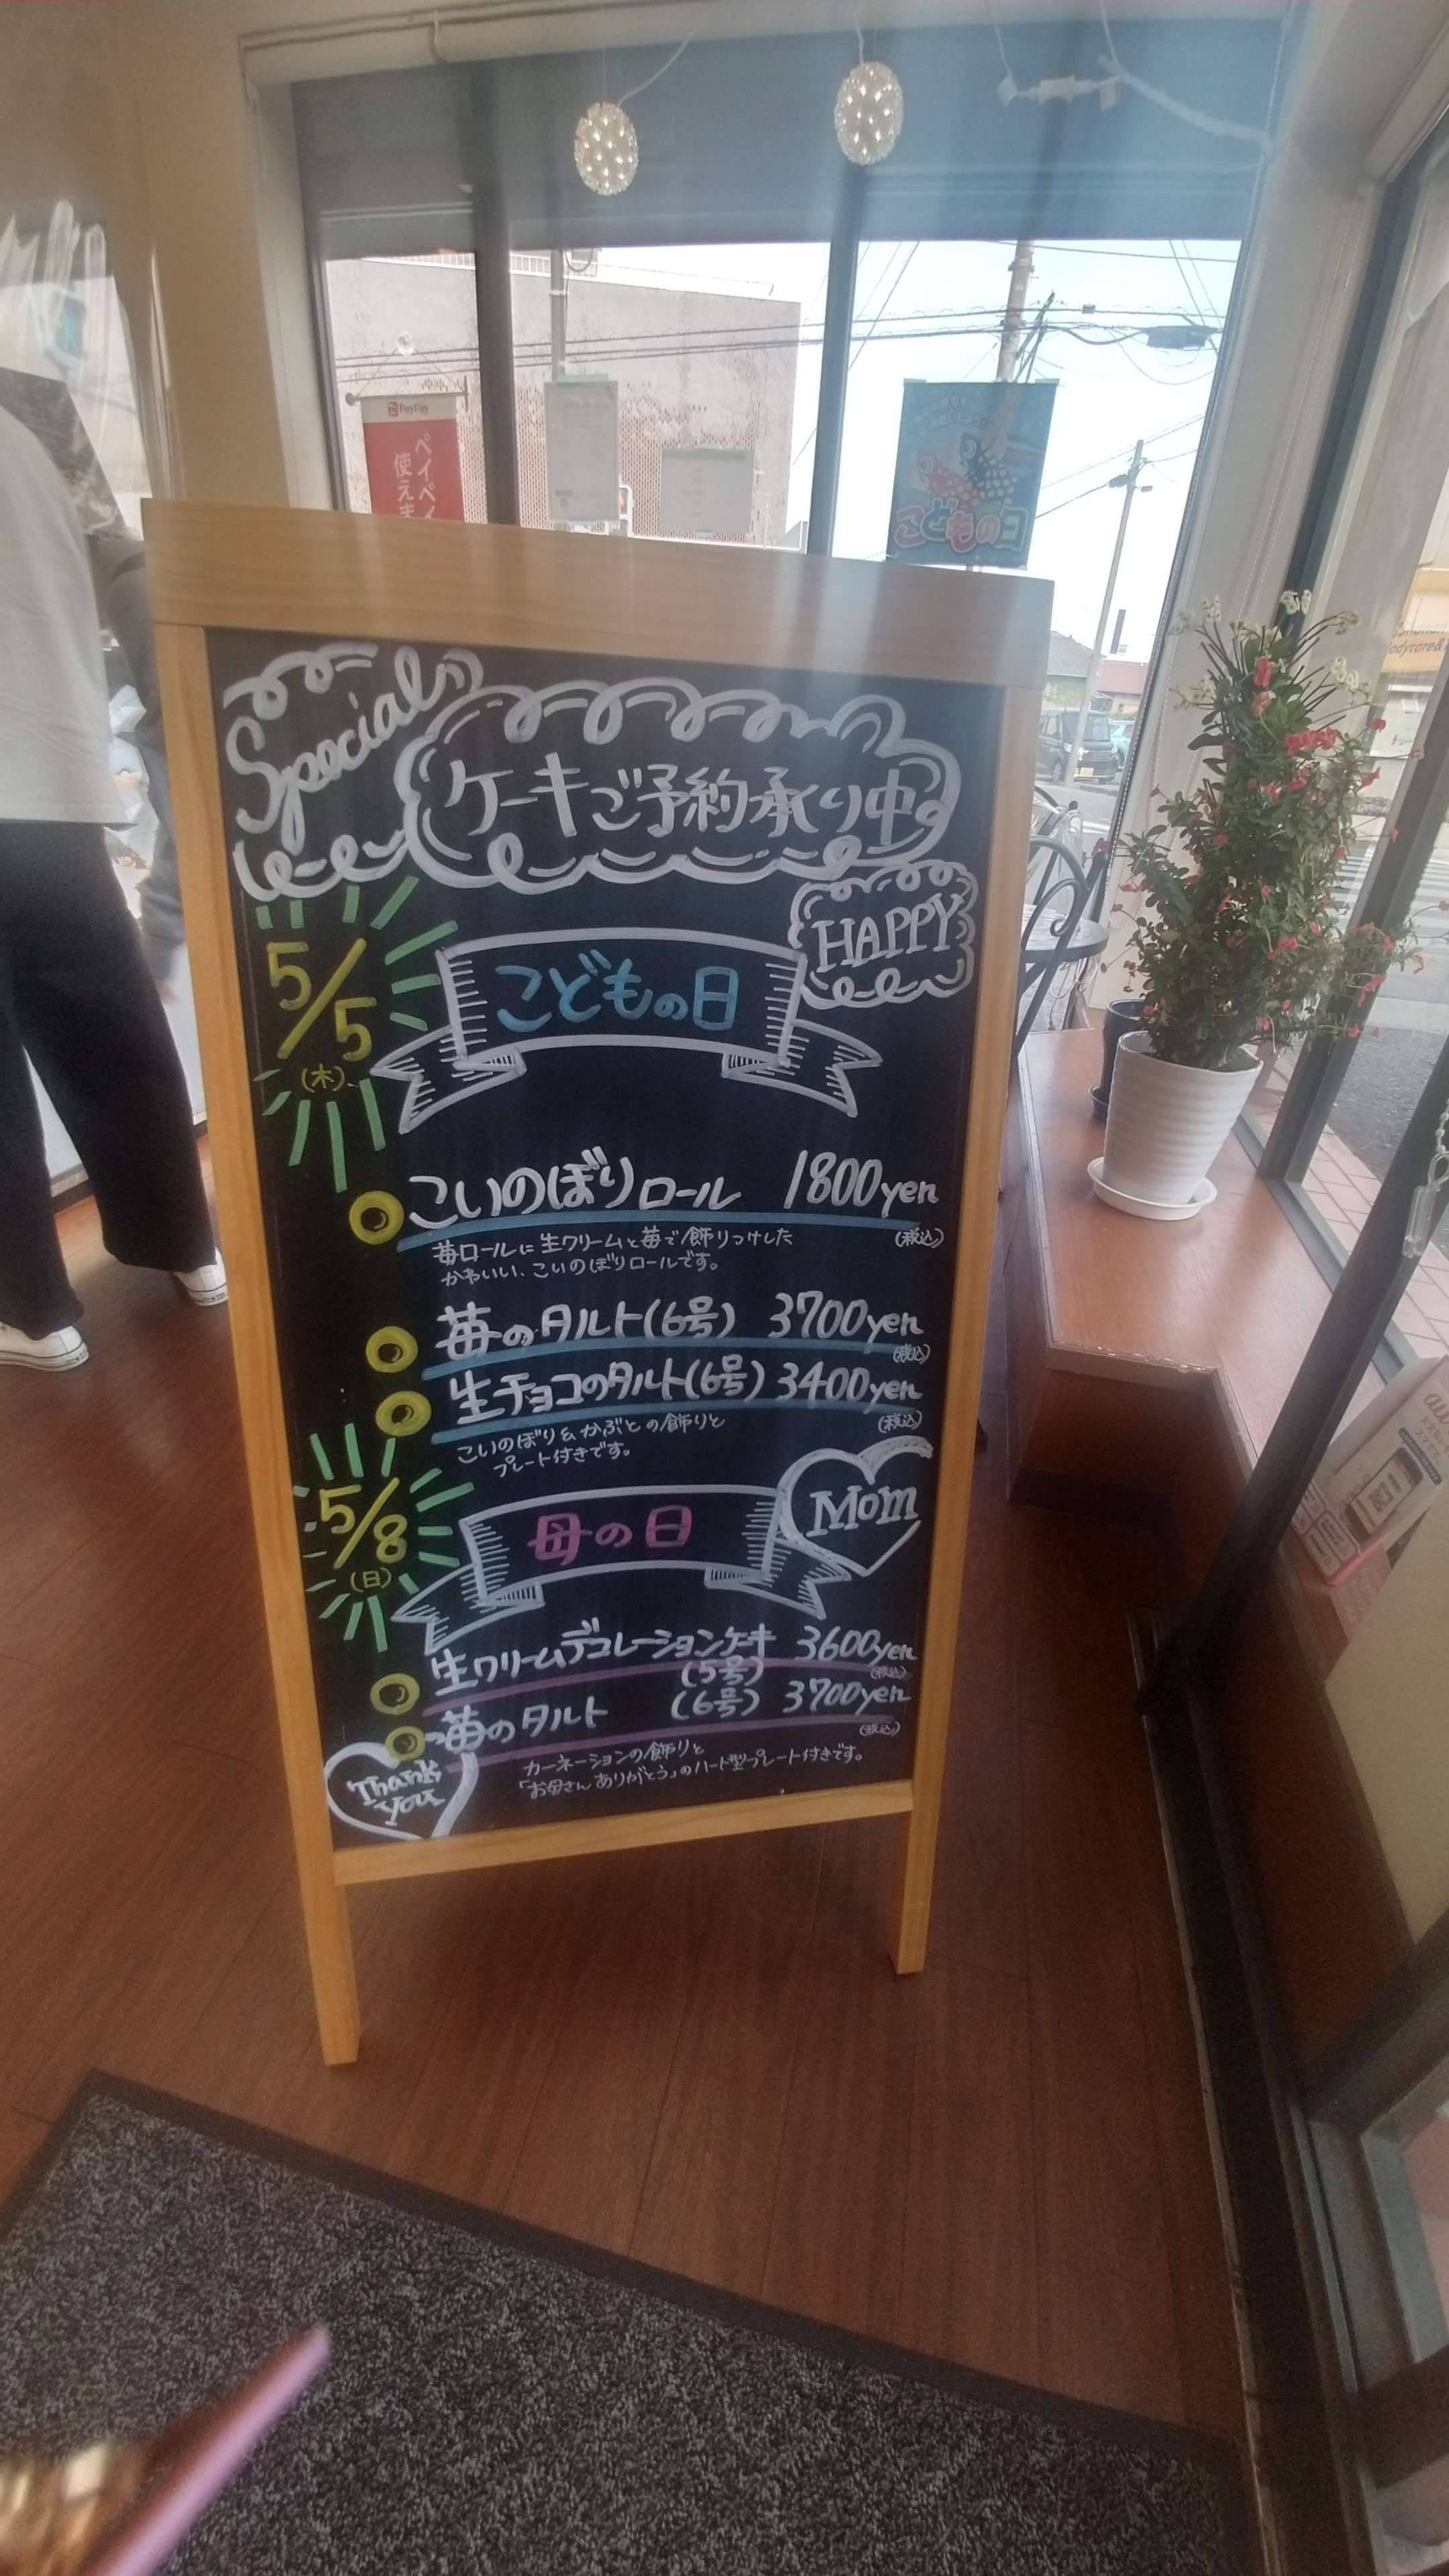 PayPay
ペイペイ
使えま
こどもの日
Special
ケーキご予約承り中
HAPPY
5/5
(木)
こどもの日
こいのぼりロール 1800yen
(税込)
苺ロールに生クリームと苺で飾りつけした
かわいい、こいのぼりロールです。
苺のタルト(6号) 3700yen
(税込)
生チョコのタルト(6号) 3400yen
(税込)
こいのぼり&かぶとの飾りと
プレート付きです。
5/8
(日)
母の日
Mom
生クリームデコレーションケーキ 3600yen
(5号) (税込)
苺のタルト (6号) 3700yen
(税込)
カーネーションの飾りと
「お母さんありがとう」のハート型プレート付きです。
Thank
you